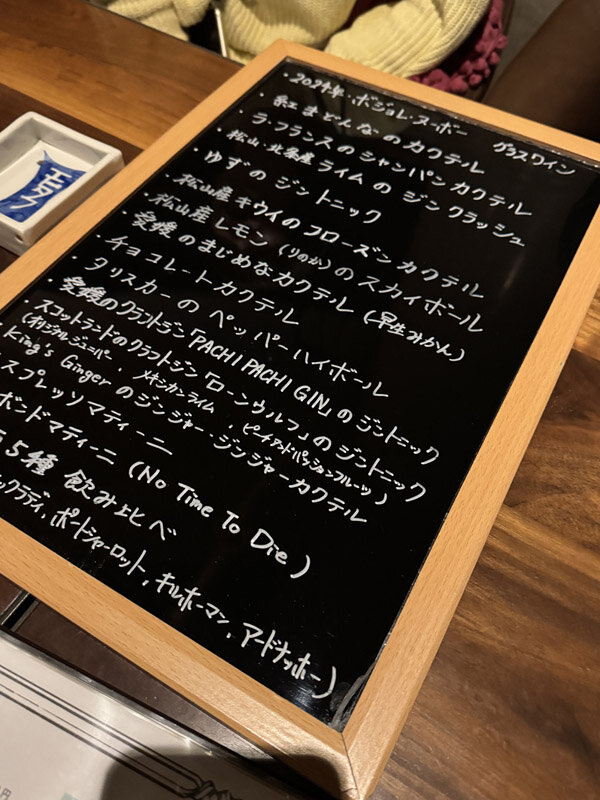 ・2024年・ボジョレ・ヌーボー グラスワイン
・紅まどんなのカクテル
・ラ・フランスのシャンパンカクテル
・松山・北条産ライムのジンクラッシュ
・ゆずのジントニック
・松山産キウイのフローズンカクテル
・松山産レモン(りのか)のスカイボール
・愛媛のまじめなカクテル(早生みかん)
・チョコレートカクテル
・タリスカーのペッパーハイボール
・愛媛のクラフトジン「PACHI PACHI GIN」のジントニック
・スコットランドのクラフトジン「ローンウルフ」のジントニック
(オリジナルジュニパー、メキシカンライム、ピーチアンドパッションフルーツ)
King's Gingerのジンジャー・ジンジャーカクテル
スプレッソマティーニ
ボンドマティーニ(No Time To Die)
5種飲み比べ
ックラディ、ポートシャーロット、キルホーマン、アードナッホー)
エタフ
円